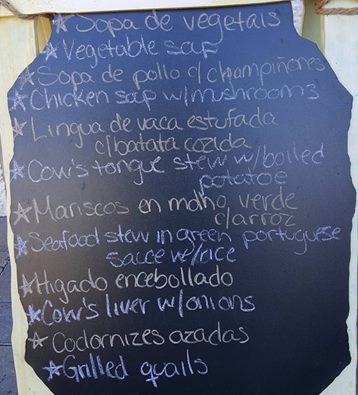 ★ Sopa de vegetals
★ Vegetable soup
★ Sopa de pollo c/champiñones
★ Chicken soup w/mushrooms
★ Lingua de vaca estufada
c/batata cozida
★ Cow's tongue stew w/boiled
potatoe
★ Mariscos en molho verde
c/arroz
★ Seafood stew in green portuguese
sauce w/rice
★ Higado encebollado
★ Cow's liver w/onions
★ Codornizes azadas
★ Grilled quails